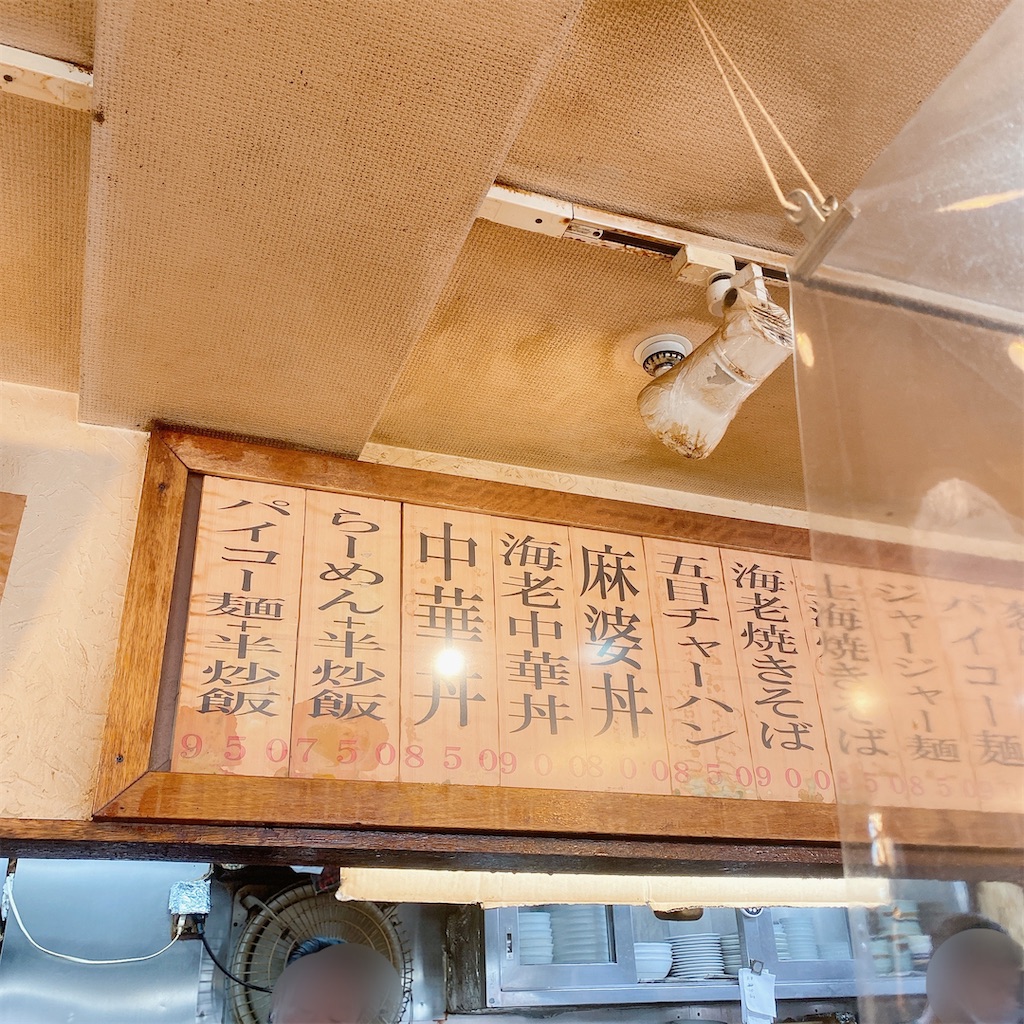 パイコー麺
ジャージャー麺
850
上海焼きそば
850
海老焼きそば
900
五目チャーハン
850
麻婆丼
800
海老中華丼
900
中華丼
850
らーめん+半炒飯
750
パイコー麺+半炒飯
950